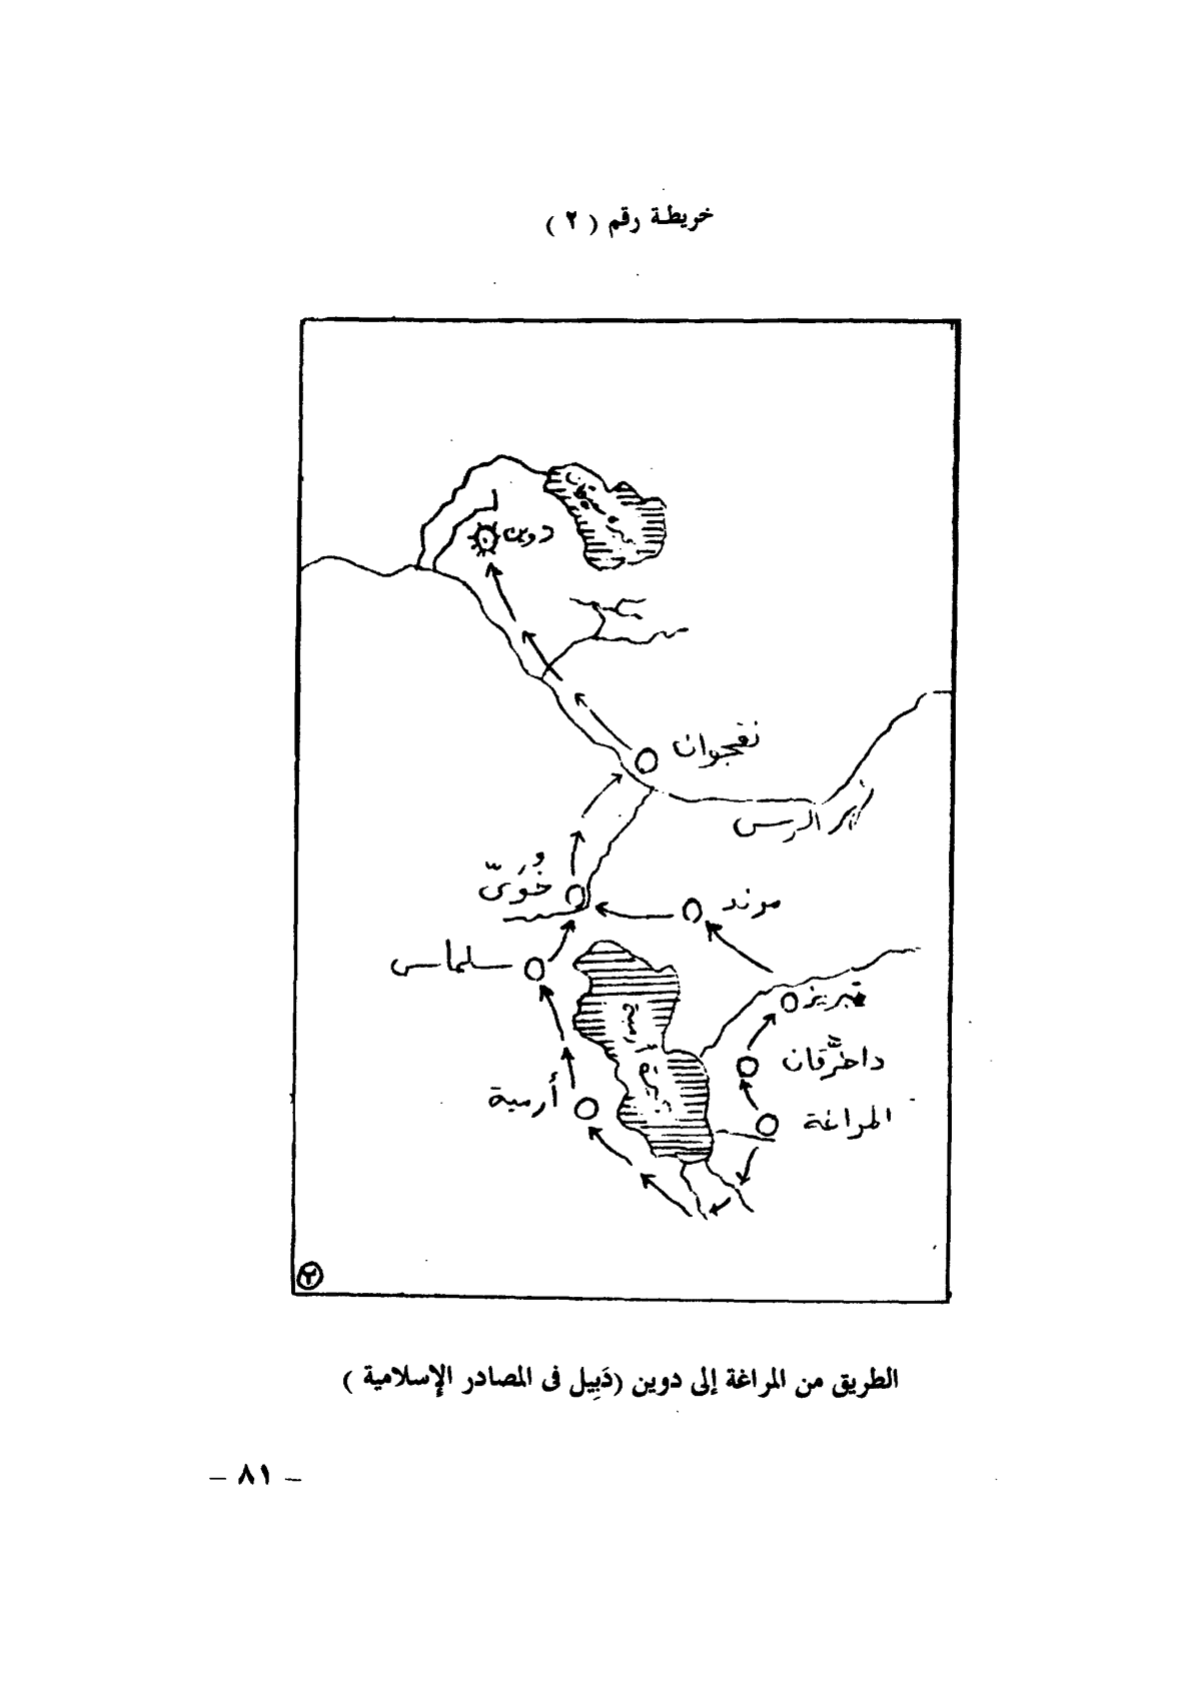 خريطة رقم ( ٢ )
دوين
نقجوان
نهر الرس
خُوَىّ
مرند
سلماس
تبريز
داخرَّقان
أرمية
المراغة
٢
الطريق من المراغة إلى دوين (دَبِيل فى المصادر الإسلامية )
– ٨١ –